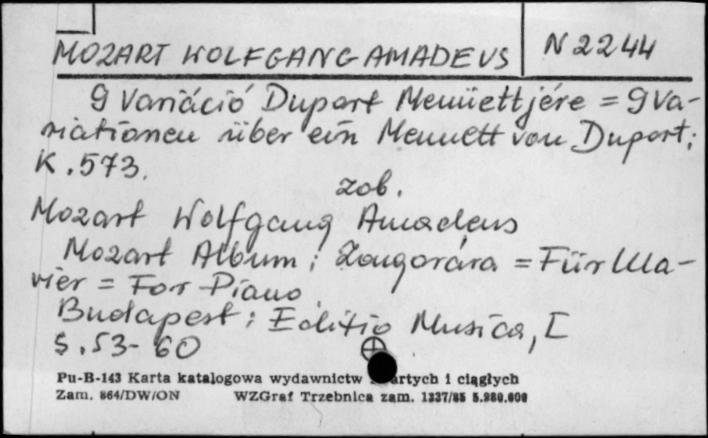 MOZART WOLFGANG AMADEUS
N 2244
9 Variáció Duport Menüettjére = 9 Va-
riationen über ein Menuett von Duport;
K. 573.
zob.
Mozart Wolfgang Amadeus
Mozart Album; Zongorára = Für Kla-
vier = For Piano.
Budapest; Editio Musica, [
S. 53-60
Pu-B-143 Karta katalogowa wydawnictw zwartych i ciągłych
Zam. 864/DW/ON WZGraf Trzebnica zam. 1337/85 5.980.000